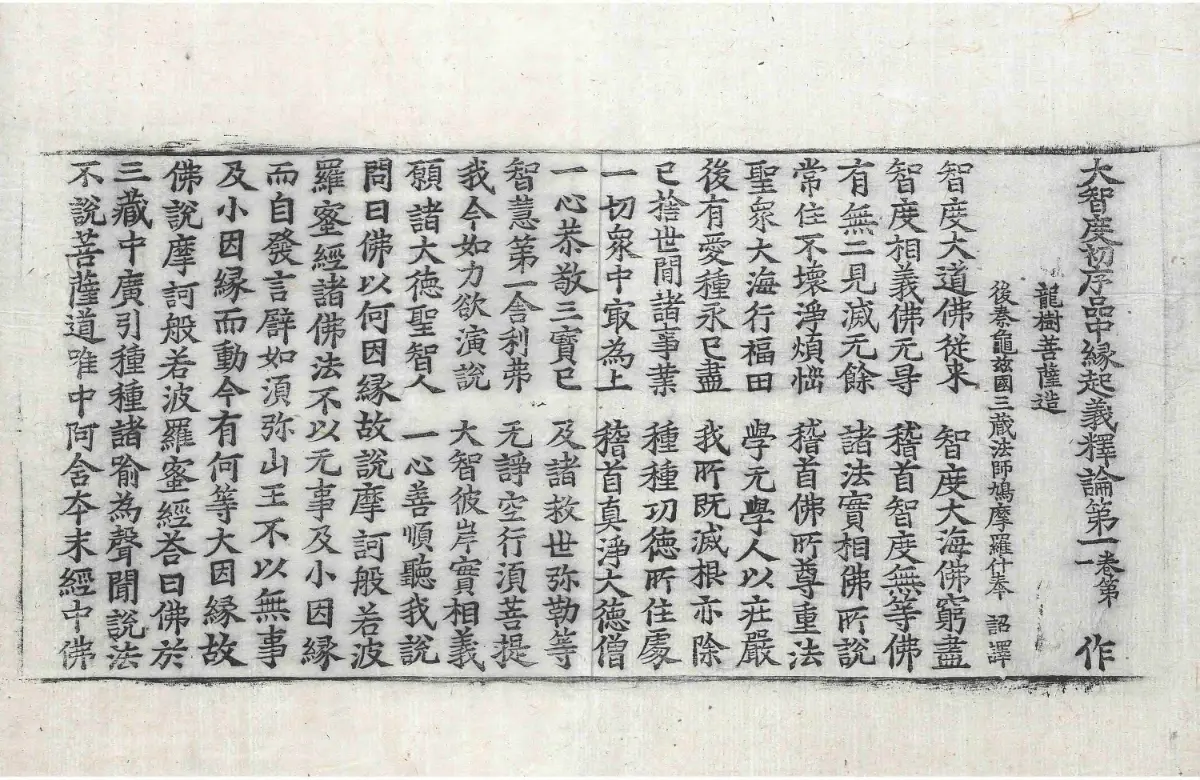 大智度初序品中縁起義釋論第一卷第一 作
龍樹菩薩造
後秦龜茲國三蔵法師鳩摩羅什奉 詔譯
智度大道佛従来 智度大海佛窮盡
智度相義佛无㝵 稽首智度無等佛
有無二見滅无餘 諸法實相佛所說
常住不壞淨煩惱 稽首佛所尊重法
聖衆大海行福田 學无學人以莊嚴
後有愛種永已盡 我所既滅根亦除
已捨世間諸事業 種種功徳所住處
一切衆中㝡為上 稽首真淨大德僧
一心恭敬三寶已 及諸救世弥勒等
智慧第一舍利弗 无諍空行湏菩提
我今如力欲演說 大智彼岸實相義
願諸大德聖智人 一心善順聽我說
問曰佛以何因縁故說摩訶般若波
羅蜜經諸佛法不以无事及小因縁
而自發言譬如湏弥山王不以無事
及小因縁而動今有何等大因縁故
佛說摩訶般若波羅蜜經荅曰佛於
三藏中廣引種種諸喻為聲聞說法
不說菩薩道唯中阿含本末經中佛